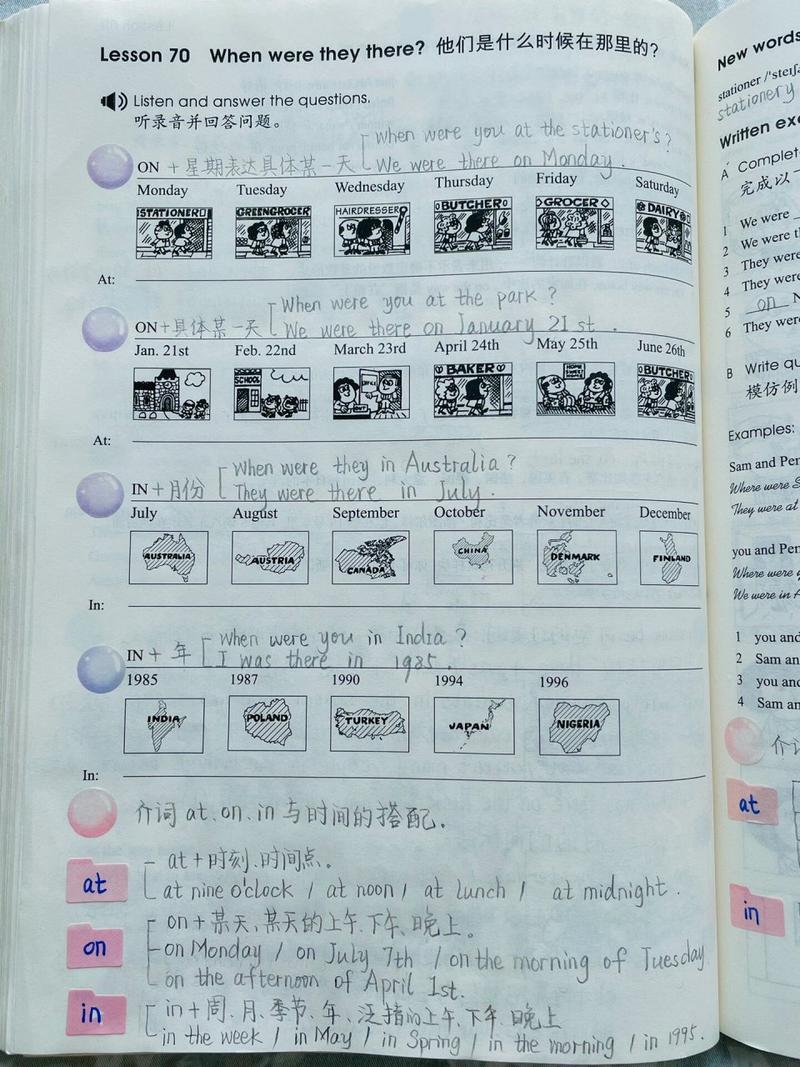 Lesson 70 When were they there? 他们是什么时候在那里的?
Listen and answer the questions.
听录音并回答问题。
When were you at the stationer's?
ON + 星期表达具体某一天 We were there on Monday.
Monday Tuesday Wednesday Thursday Friday Saturday
STATIONER GREENGROCER HAIRDRESSER BUTCHER GROCER DAIRY
At:
When were you at the park?
ON + 具体某一天 We were there on January 21 st.
Jan. 21st Feb. 22nd March 23rd April 24th May 25th June 26th
SCHOOL OFFICE BAKER BUTCHER
At:
When were they in Australia?
IN + 月份 They were there in July.
July August September October November December
AUSTRALIA AUSTRIA CANADA CHINA DENMARK FINLAND
In:
When were you in India?
IN + 年 I was there in 1985.
1985 1987 1990 1994 1996
INDIA POLAND TURKEY JAPAN NIGERIA
In:
介词 at、on、in 与时间的搭配.
at + 时刻、时间点。
at
at nine o'clock / at noon / at lunch / at midnight.
on + 某天、某天的上午、下午、晚上。
on
on Monday / on July 7th / on the morning of Tuesday
on the afternoon of April 1st.
in + 周、月、季节、年、泛指的上午、下午、晚上
in
in the week / in May / in Spring / in the morning / in 1995.
New words
stationer
stationery
Written
A Complete
完成以
1 We were
2 We were
3 They were
4 They were
5 on
6 They were
B Write
模仿例
Examples:
Sam and
Where were
They were at
you and
Where were
We were in
1 you and
2 Sam
3 you and
4 Sam
介
at
in